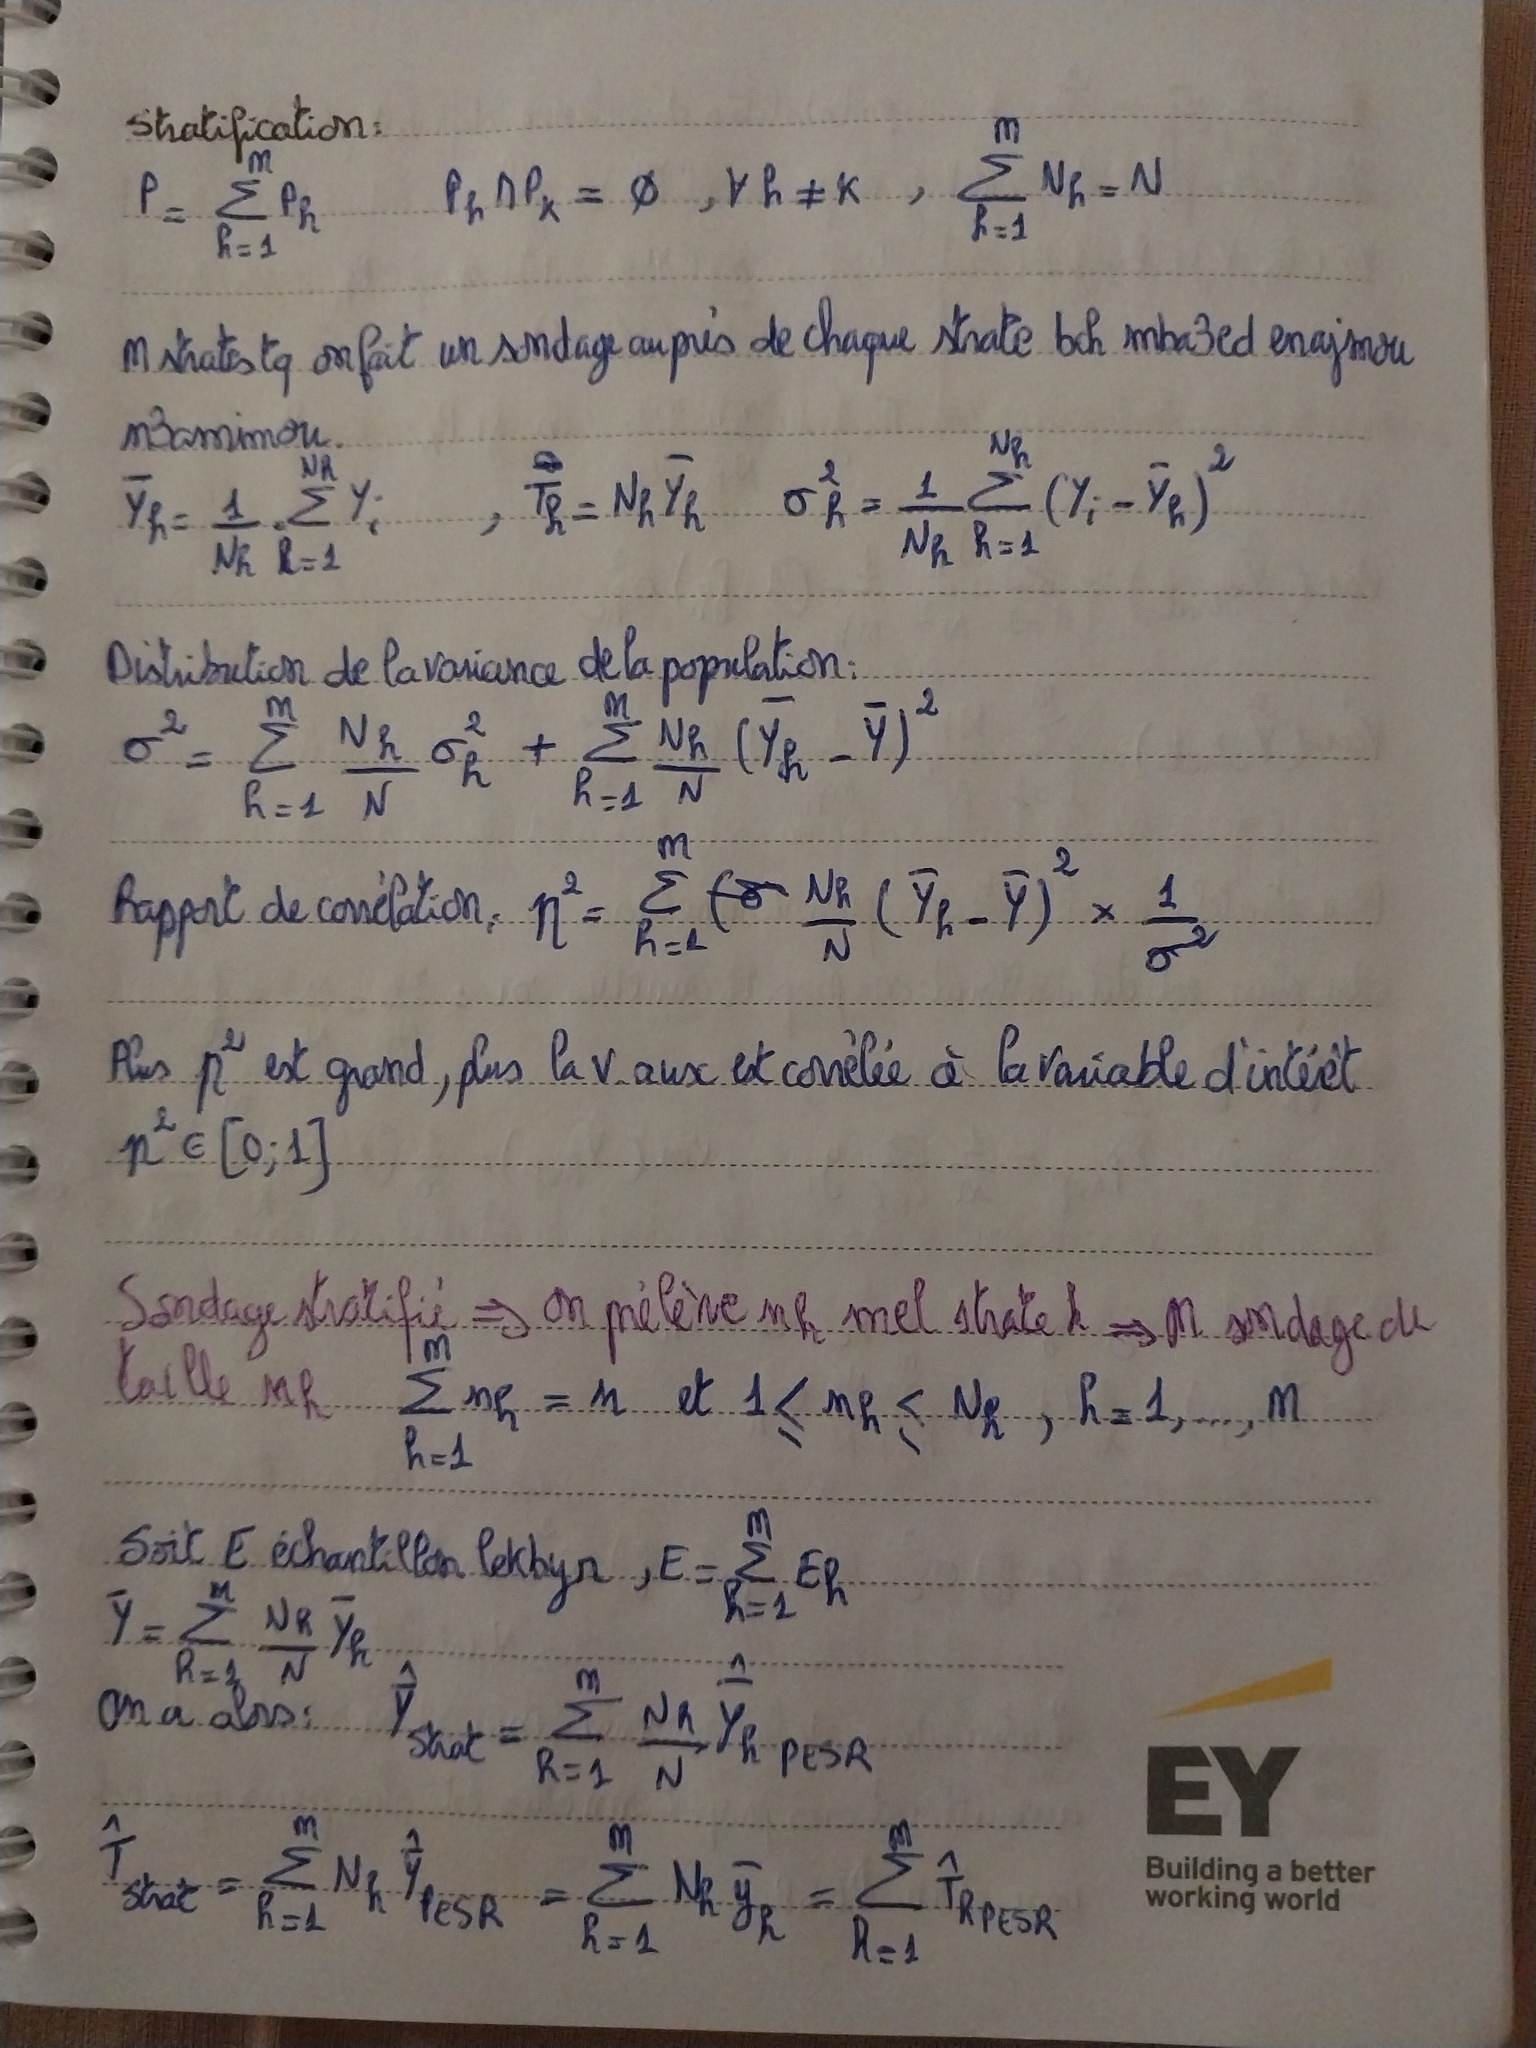 Stratification:
P = \sum_{h=1}^{M} P_h    P_h ∩ P_k = ∅ , ∀ h ≠ k , \sum_{h=1}^{M} N_h = N
M strates tq on fait un sondage auprès de chaque strate bch mba3ed enajmou
n3ammmou.
\bar{Y}_h = \frac{1}{N_h} . \sum_{h=1}^{N_h} Y_i , T_h = N_h \bar{Y}_h    σ_h^2 = \frac{1}{N_h} \sum_{h=1}^{N_h} (Y_i - \bar{Y}_h)^2
Distribution de la variance de la population:
σ^2 = \sum_{h=1}^{M} \frac{N_h}{N} σ_h^2 + \sum_{h=1}^{M} \frac{N_h}{N} (\bar{Y}_h - \bar{Y})^2
Rapport de corrélation: η^2 = \sum_{h=1}^{M} \frac{N_h}{N} (\bar{Y}_h - \bar{Y})^2 × \frac{1}{σ^2}
Plus η^2 est grand, plus la v.aux est corrélée à la variable d'intérêt
η^2 ∈ [0;1]
Sondage stratifié ⇒ on prélève n_h mel strate h ⇒ M sondage de
taille n_h    \sum_{h=1}^{M} n_h = n et 1 ≤ n_h ≤ N_h , h = 1, ..., M
Soit E échantillon lekbyr , E = \sum_{h=1}^{M} E_h
\bar{Y} = \sum_{h=1}^{M} \frac{N_h}{N} \bar{Y}_h
On a alors: \hat{\bar{Y}}_{strat} = \sum_{h=1}^{M} \frac{N_h}{N} \hat{\bar{Y}}_{h PESR}
\hat{T}_{strat} = \sum_{h=1}^{M} N_h \hat{\bar{Y}}_{PESR} = \sum_{h=1}^{M} N_h \bar{y}_h = \sum_{h=1}^{M} \hat{T}_{h PESR}
EY
Building a better
working world